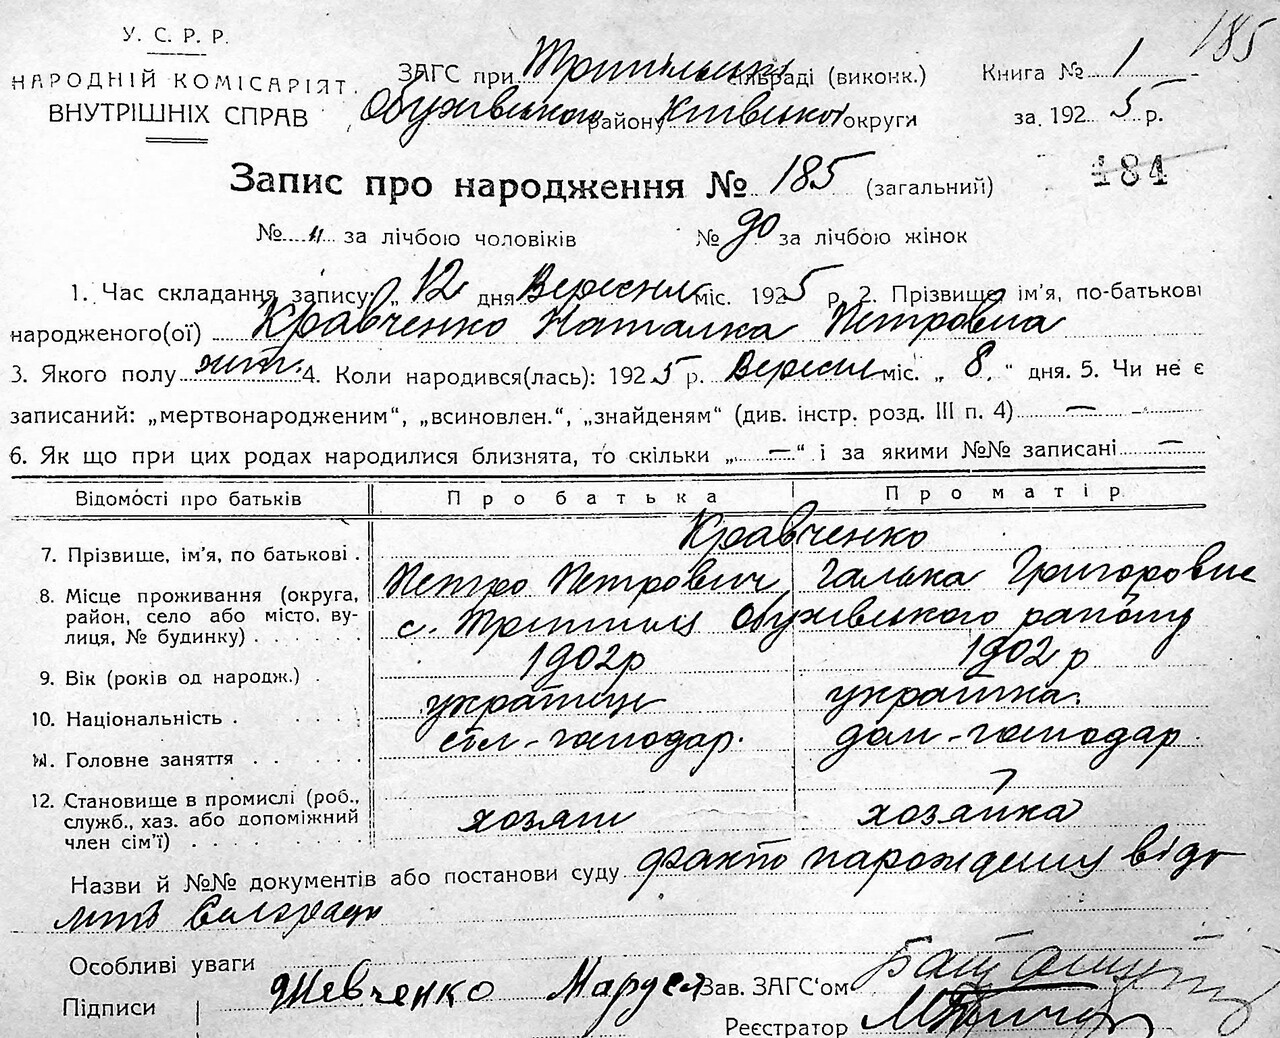 185
У. С. Р. Р.
НАРОДНІЙ КОМІСАРІЯТ
ВНУТРІШНІХ СПРАВ
ЗАГС при Трипільській сільраді (виконк.)
Обухівського району Київської округи
Книга № 1
за 1925 р.
184
Запис про народження № 185 (загальний)
№ „ за лічбою чоловіків № 90 за лічбою жінок
1. Час складання запису: „12 дня Вересня міс. 1925 р. 2. Прізвище, ім'я, по-батькові
народженого(ої) Кравченко Наталка Петровна
3. Якого полу жін. 4. Коли народився(лась): 1925 р. Вересня міс. „8“ дня. 5. Чи не є
записаний: „мертвонародженим“, „всиновлен.“, „знайденям“ (див. інстр. розд. III п. 4) —
6. Як що при цих родах народилися близнята, то скільки „—“ і за якими №№ записані —
Відомості про батьків Про батька Про матір
7. Прізвище, ім'я, по батькові . Кравченко
Петро Петрович Галька Григоровна
8. Місце проживання (округа,
район, село або місто, ву-
лиця, № будинку) с. Трипілля Обухівського району
9. Вік (років од народж.) . 1902 р 1902 р
10. Національність . українець українка.
11. Головне заняття сіл-господар. дом-господар.
12. Становище в промислі (роб.,
служб., хаз. або допоміжний
член сім'ї) хозяїн хозяйка
Назви й №№ документів або постанови суду факт народження відо
мий Сельраді
Особливі уваги
Підписи Шевченко Маруся Зав. ЗАГС'ом
Реєстратор